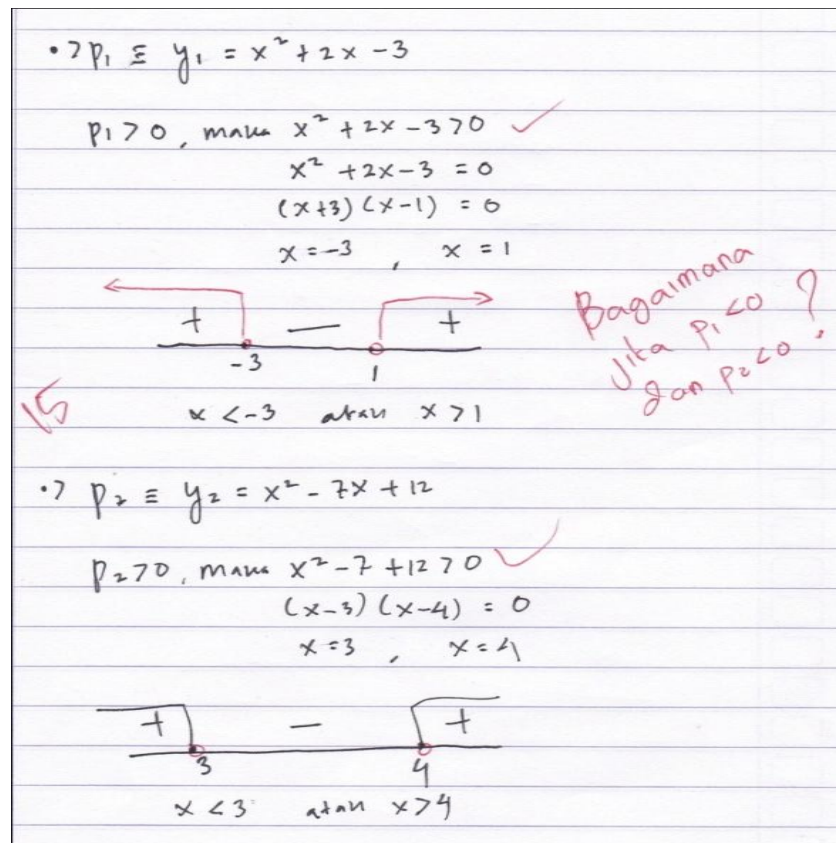 •> P₁ ≡ y₁ = x² + 2x - 3
P₁ > 0, maka x² + 2x - 3 > 0 ✓
x² + 2x - 3 = 0
(x+3) (x-1) = 0
x = -3 , x = 1
+ — +
-3 1
x < -3 atau x > 1
15
Bagaimana
Jika P₁ < 0
dan P₂ < 0 ?
•> P₂ ≡ y₂ = x² - 7x + 12
P₂ > 0, maka x² - 7 + 12 > 0 ✓
(x-3) (x-4) = 0
x = 3 , x = 4
+ — +
3 4
x < 3 atau x > 4